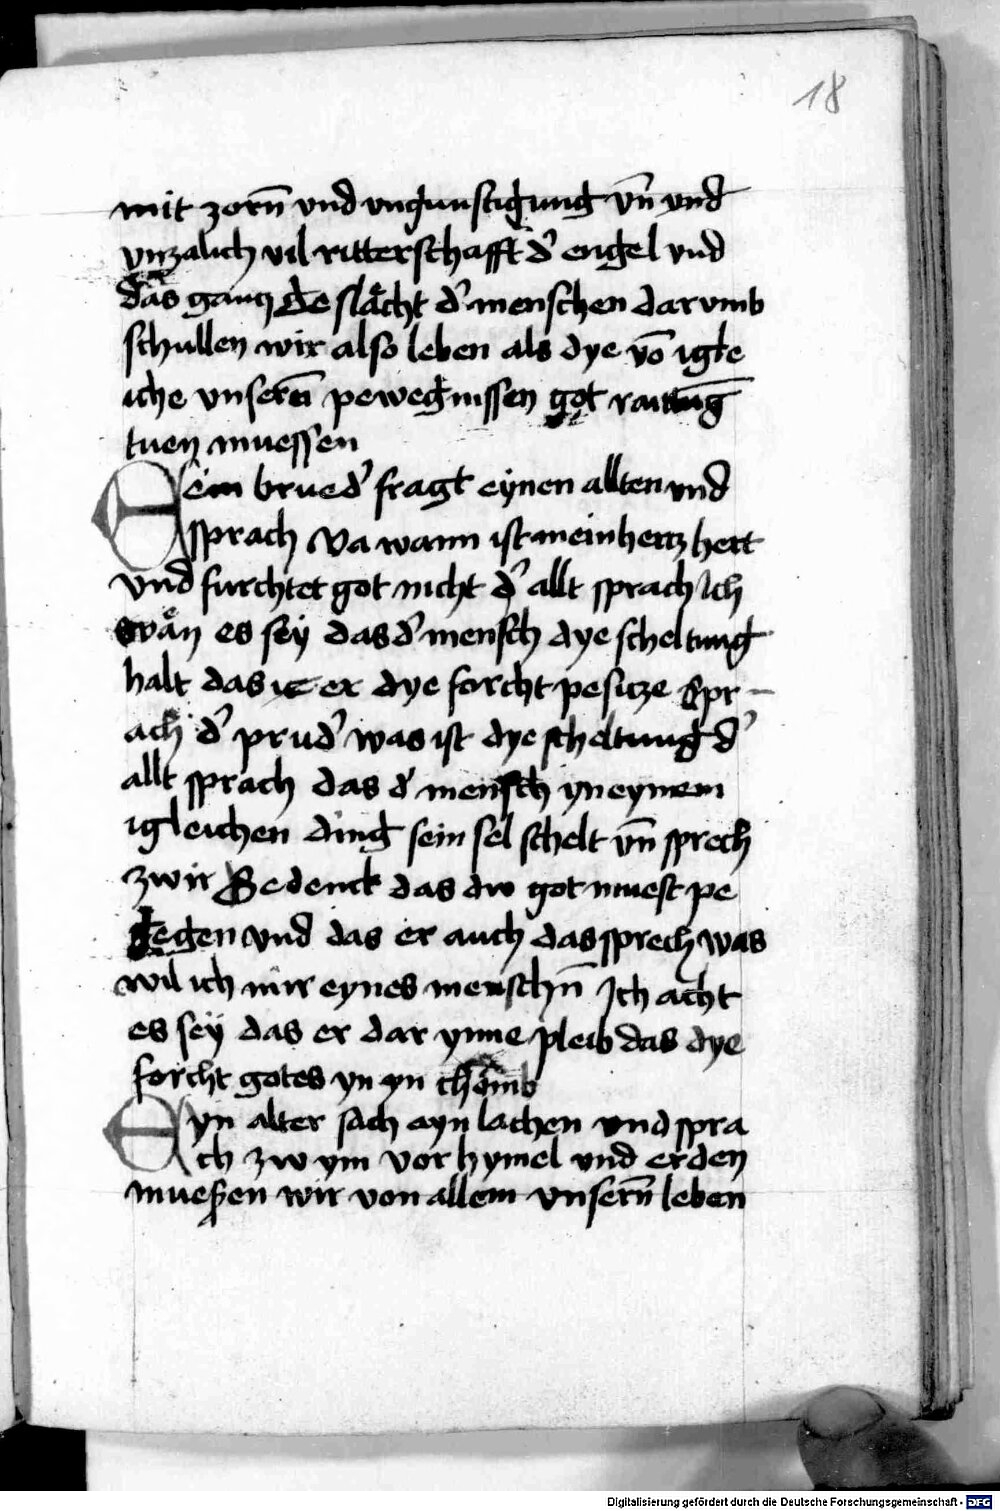 18
mit zorn̄ vnd vngunstigung vn̄ vnd
vnzalich vil ritterschafft d' engel vnd
das gancz de slåcht d' menschen dar vmb
schullen wir also leben als dye vō igle
iche vnsern̄ pewegnissen got raittūg
tuen muessen
Eein brued' fragt eynen allten vnd
sprach Va wann ist mein hertz hert
vnd furchtet got nicht d' allt sprach Ich
wån es sey das d' mensch dye scheltung
halt das er dye forcht pesitze Spr
ach d' prud' was ist dye scheltung d'
allt sprach das d' mensch yn eynem
igleichen ding sein sel schelt vn̄ sprech
zw ir Gedenck das dw got muest pe
gegen vnd das er auch das sprech was
wil ich mir eynes menschn̄ Ich acht
es sey das er dar ynne pleib das dye
forcht gotes yn yn chömb
Eyn alter sach ayn lachen vnd spra
ch zw ym vor hymel vnd erden
muessen wir von allem vnsern̄ leben
Digitalisierung gefördert durch die Deutsche Forschungsgemeinschaft - DFG